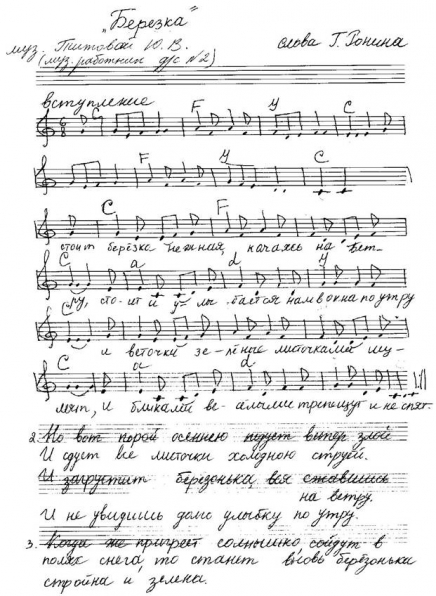 „Березка“
муз. Титовой Ю.В. слова Г. Ронина
(муз. работник д/с №2)
вступление
C F У C
F У C
C F
стоит берёзка нежная, качаясь на вет-
C a d У
ру, сто-ит и у-лы-бается нам в окна по утру
C
и веточки зе-лёные листочками шу-
C a d
мят, и бликами ве-сёлыми трепещут и не спят.
2. Но вот порой осеннею подует ветер злой
И сдует все листочки холодною струёй.
И загрустит березонька, вся ставшись на ветру.
И не увидишь долго улыбку по утру.
3. Когда же пригреет солнышко, сойдут в
полях снега, то станет вновь берёзонька
стройна и зелена.